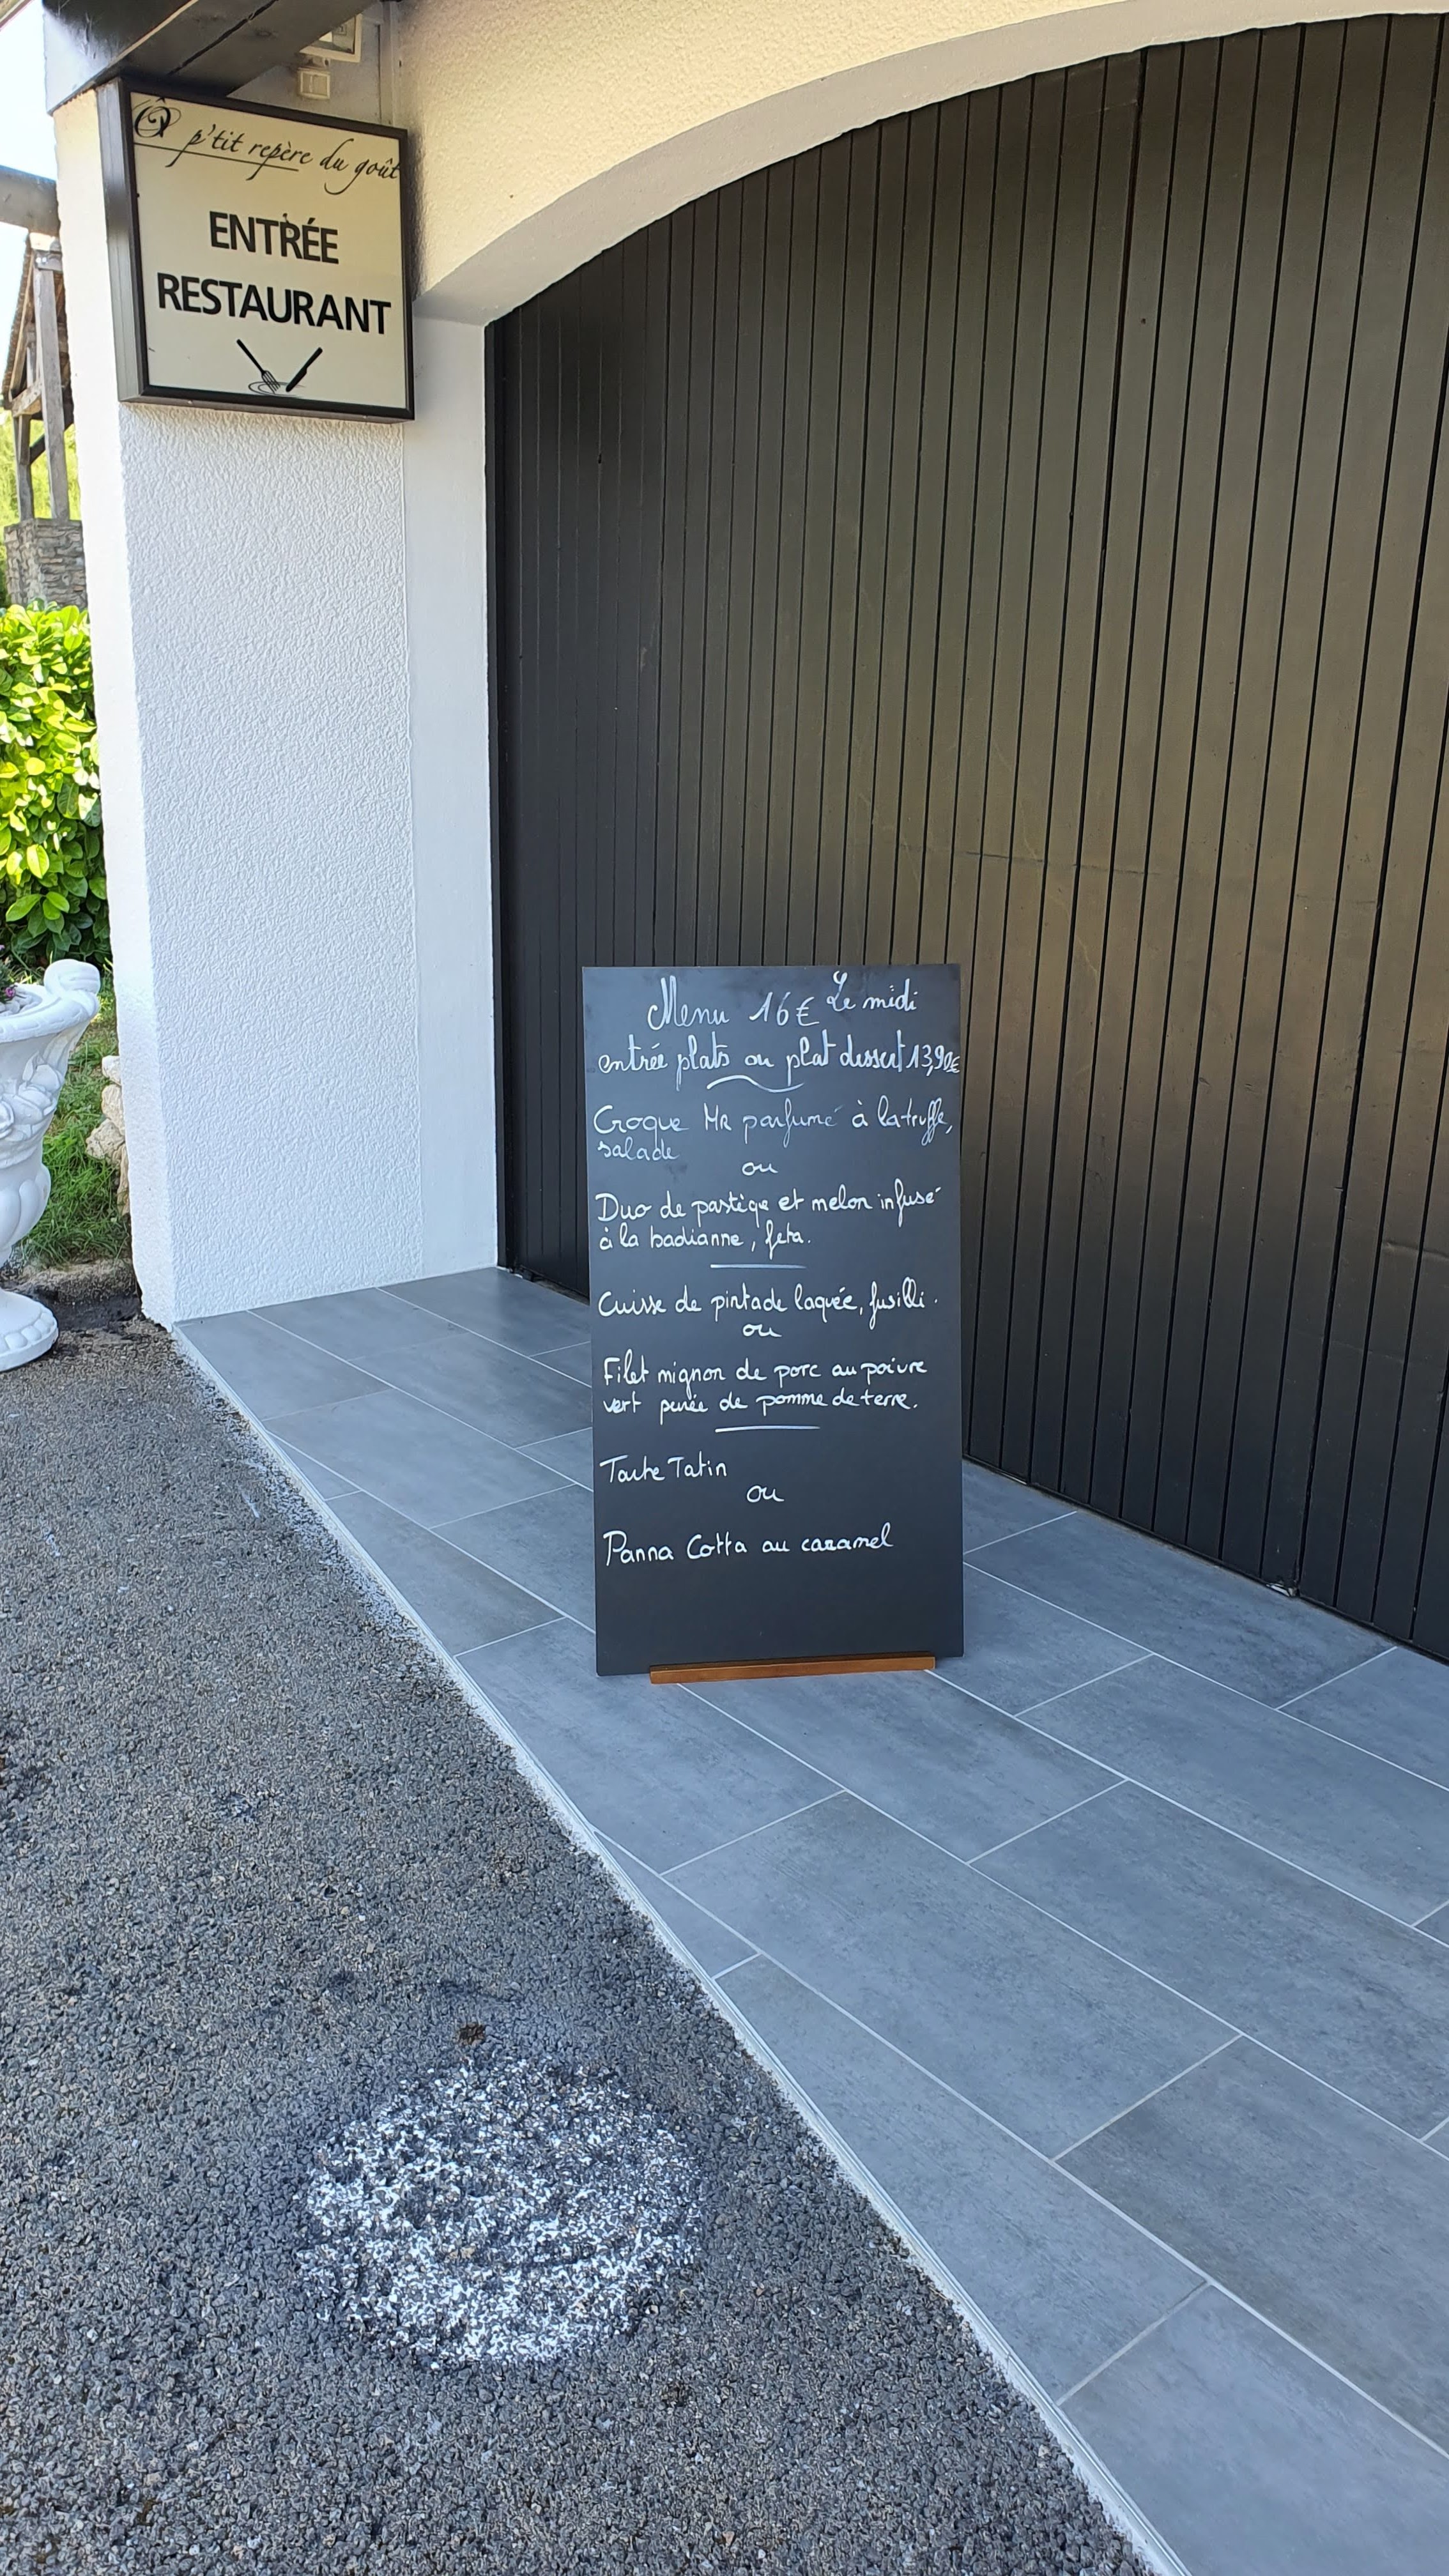 Ô p'tit repère du goût
ENTRÉE
RESTAURANT
Menu 16€ Le midi
entrée plats ou plat dessert 13,90€
Croque MR parfumé à la truffe,
salade
ou
Duo de pastèque et melon infusé
à la badianne, feta.
Cuisse de pintade laquée, fusilli.
ou
Filet mignon de porc au poivre
vert purée de pomme de terre.
Tarte Tatin
ou
Panna Cotta au caramel